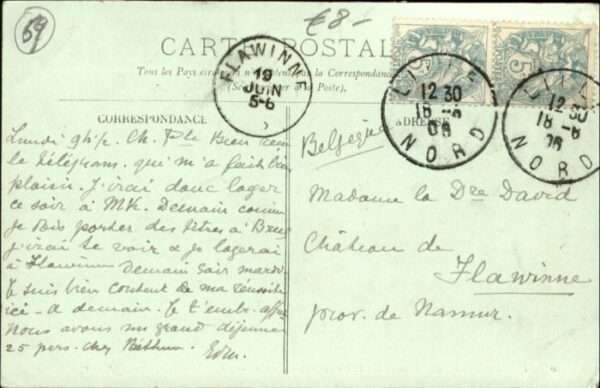 59
€8-
CARTE POSTALE
Tous les Pays la Correspondance
(Se à la Poste).
FLAWINNE
19
JUIN
5-6
LILLE
12 30
18 -6
06
NORD
LILLE
12 30
18 -6
06
NORD
5
CORRESPONDANCE
Lundi 9h½. Ch. Ptte Bien reçu
le télégram. qui m'a fait bien
plaisir. J'irai donc loger
ce soir à Demain comme
je dois porter des titres à Brux
j'irai te voir & je logerai
à Flawinne Demain soir mardi.
Je suis bien content de ma réussite
ici - à demain. Je t'emb. aff.
Nous avons un grand déjeuner
25 pers. chez Béthune.
Edm.
ADRESSE
Belgique
Madame la Dre David
Château de
Flawinne
prov. de Namur.